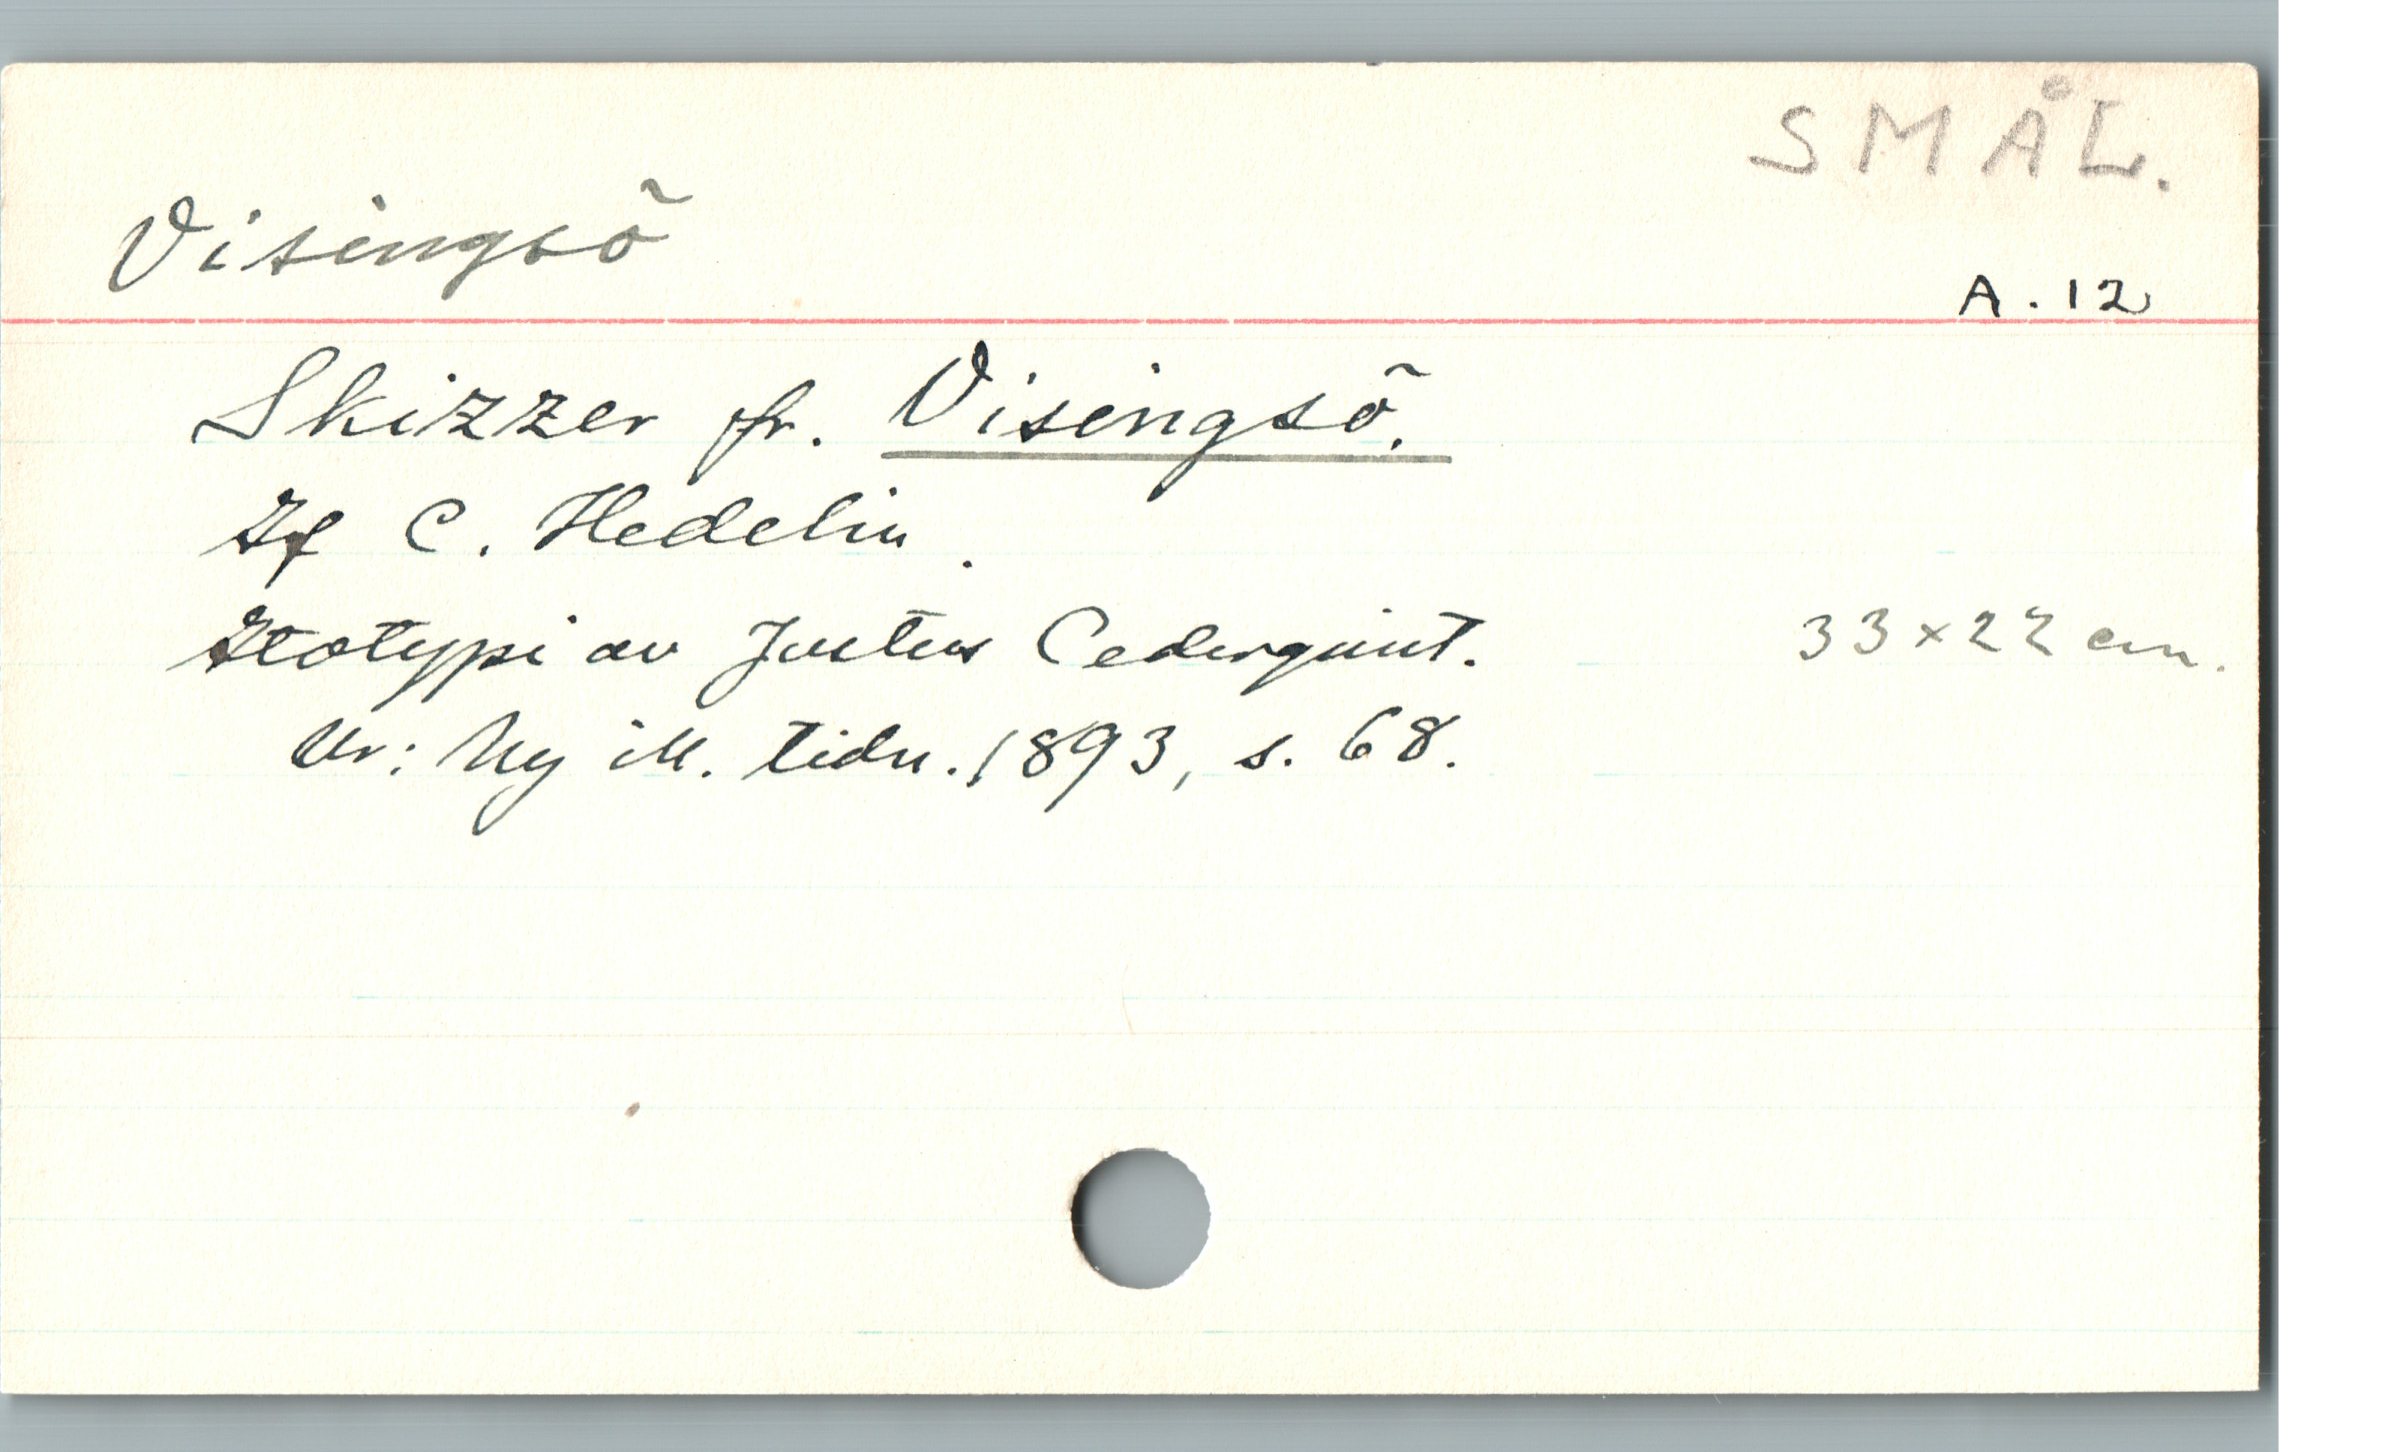 SMÅL.
Visingsö
A. 12
Skizzer fr. Visingsö.
C. Hedelin.
av Justus Cederquist. 33x22 cm.
Ur: Ny ill. tidn. 1893, s. 68.